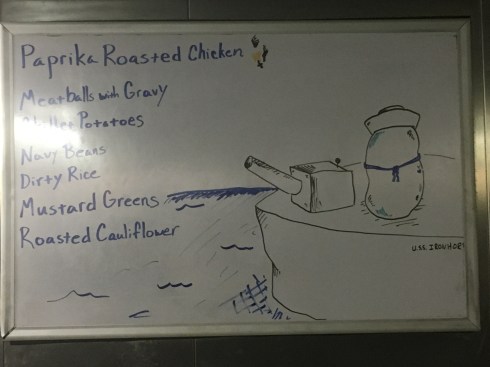 Paprika Roasted Chicken
Meatballs with Gravy
Potatoes
Navy Beans
Dirty Rice
Mustard Greens
Roasted Cauliflower
U.S.S.